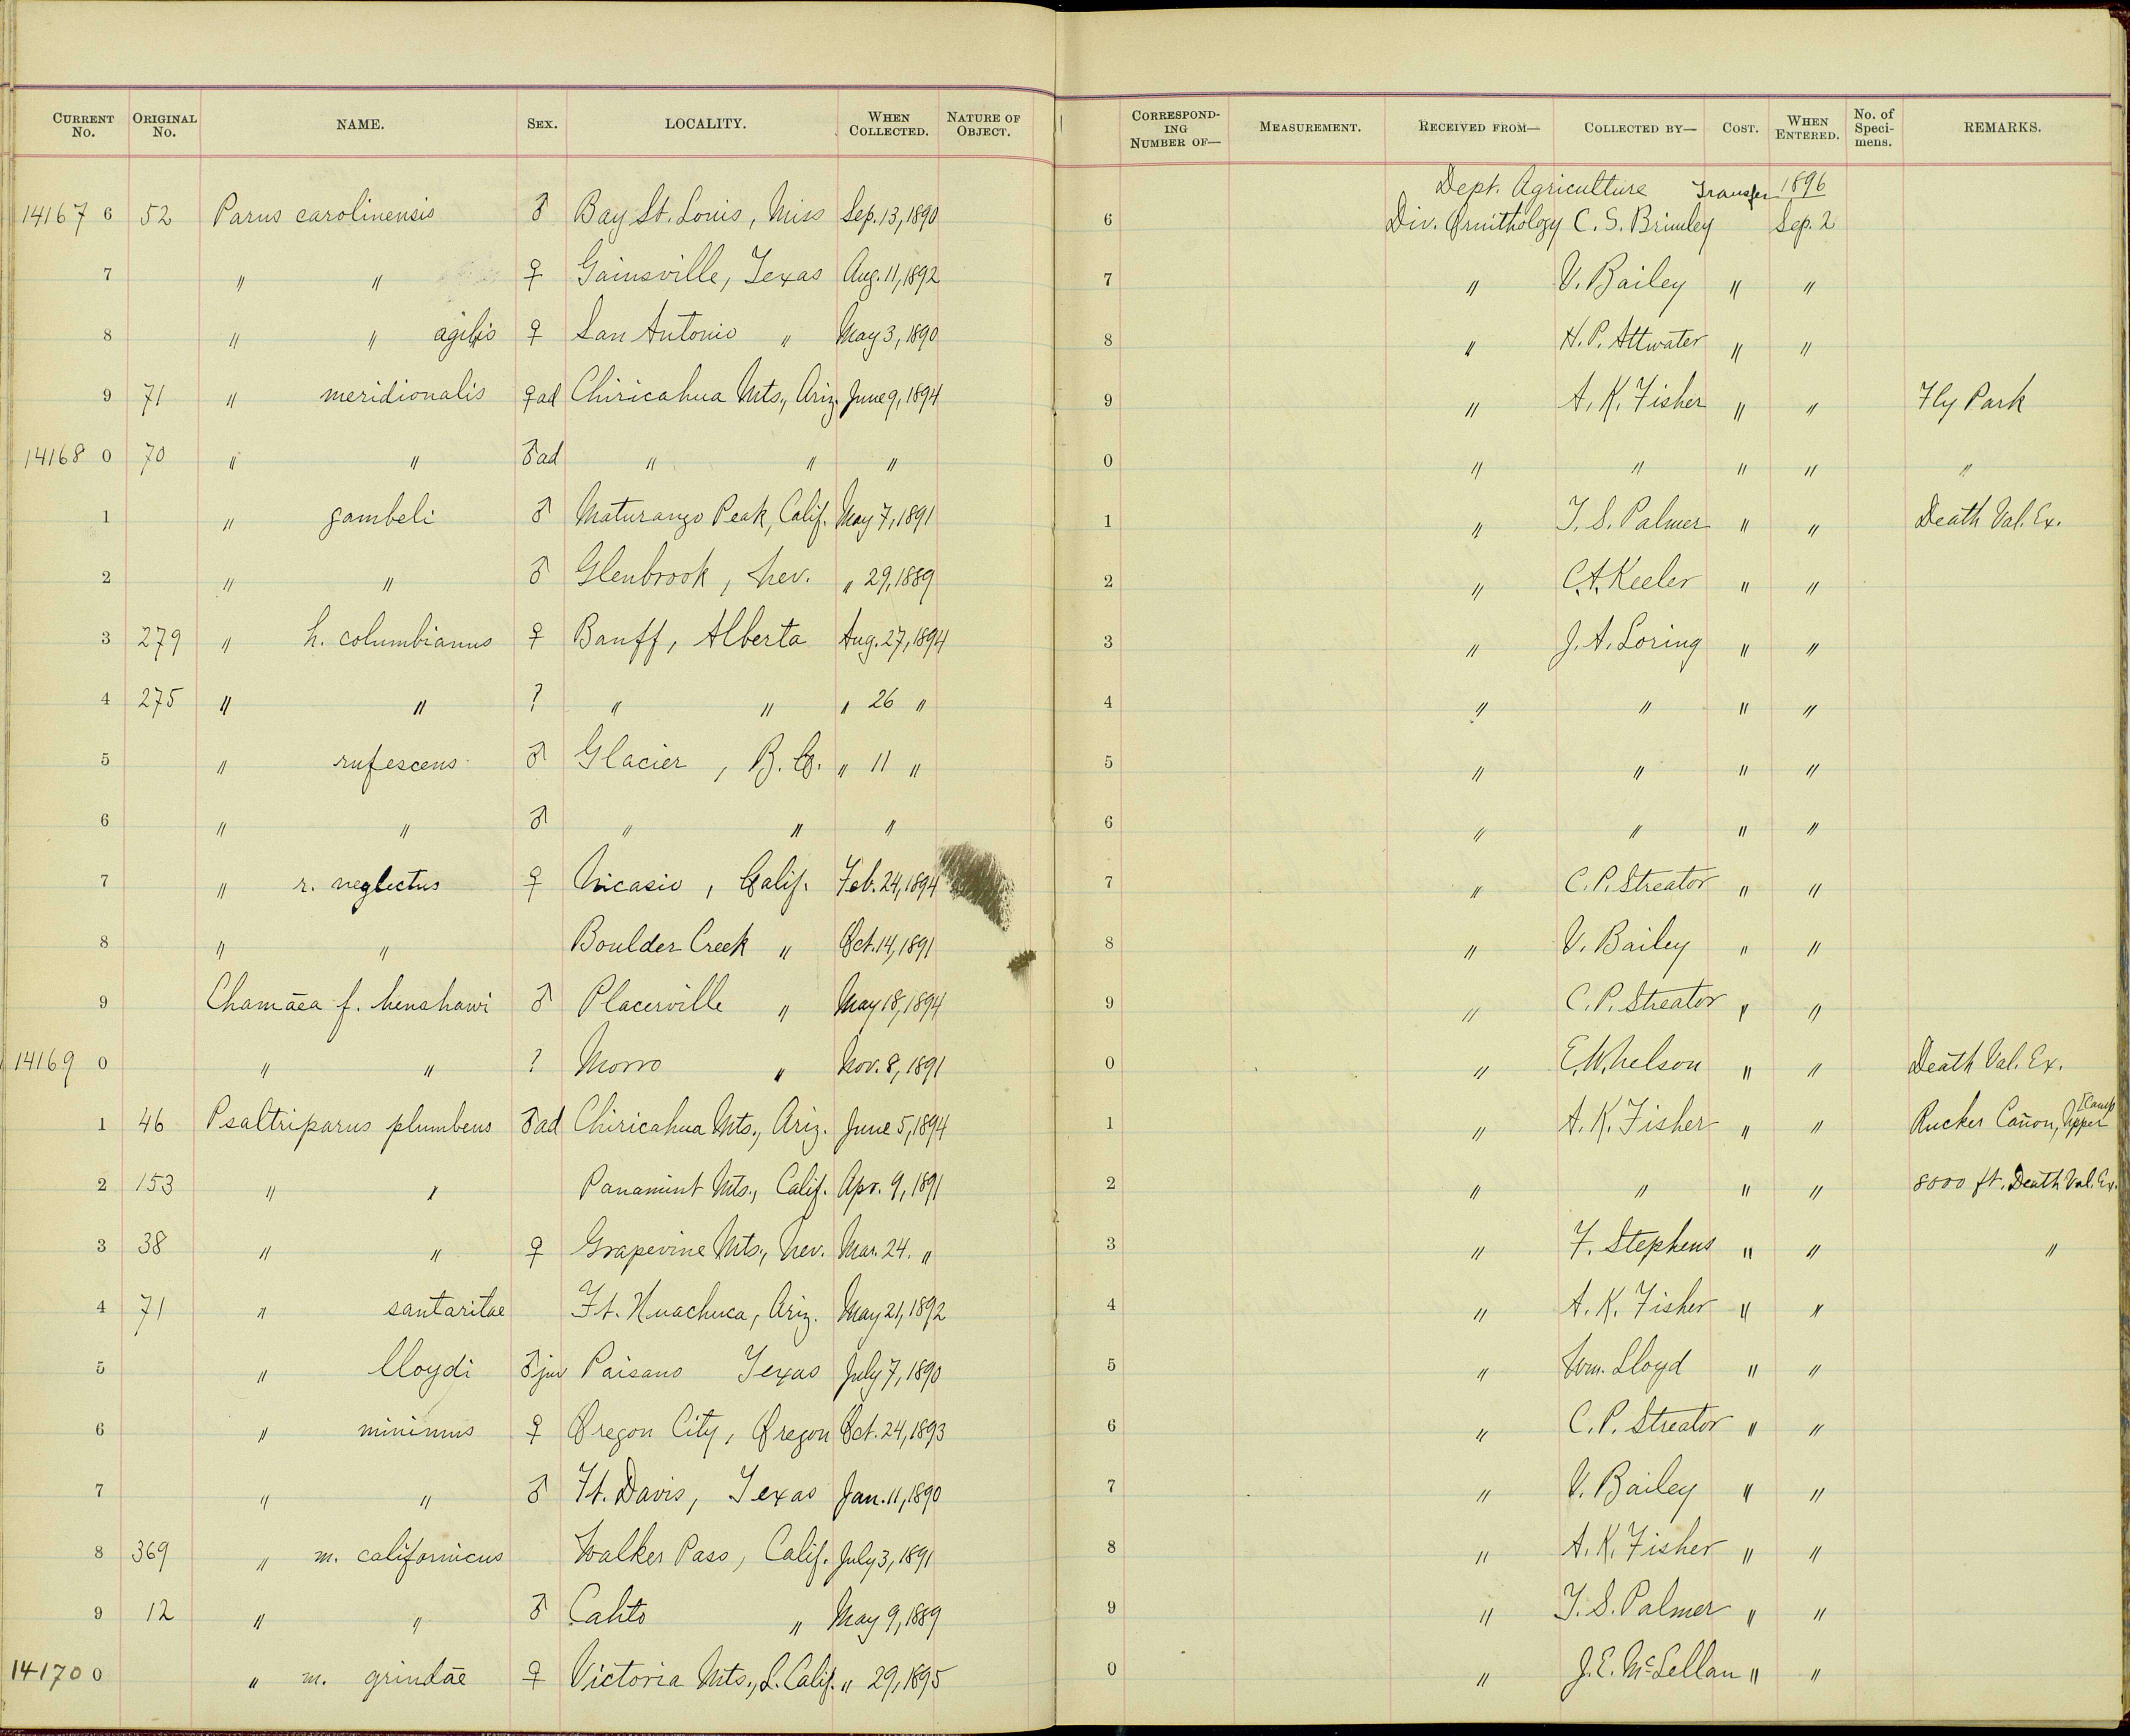 CURRENT No. ORIGINAL No. NAME. SEX. LOCALITY. WHEN COLLECTED. NATURE OF OBJECT. CORRESPONDING NUMBER OF— MEASUREMENT. RECEIVED FROM— COLLECTED BY— COST. WHEN ENTERED. No. of Specimens. REMARKS.
Dept. Agriculture Transfer 1896
14167 6 52 Parus carolinensis ♂ Bay St. Louis, Miss Sep. 13, 1890 6 Div. Ornithology C. S. Brimley Sep. 2
7 " " ♀ Gainsville, Texas Aug. 11, 1892 7 " V. Bailey " "
8 " " agilis ♀ San Antonio " May 3, 1890 8 " H. P. Attwater " "
9 71 " meridionalis ♀ad Chiricahua Mts., Ariz. June 9, 1894 9 " A. K. Fisher " " Fly Park
14168 0 70 " " ♂ad " " " 0 " " " " "
1 " gambeli ♂ Maturango Peak, Calif. May 7, 1891 1 " T. S. Palmer " " Death Val. Ex.
2 " " ♂ Glenbrook, Nev. " 29, 1889 2 " C. A. Keeler " "
3 279 " h. columbianus ♀ Banff, Alberta Aug. 27, 1894 3 " J. A. Loring " "
4 275 " " ? " " " 26 " 4 " " " "
5 " rufescens ♂ Glacier, B. C. " 11 " 5 " " " "
6 " " ♂ " " " 6 " " " "
7 " r. neglectus ♀ Nicasio, Calif. Feb. 24, 1894 7 " C. P. Streator " "
8 " " Boulder Creek " Oct. 14, 1891 8 " V. Bailey " "
9 Chamaea f. henshawi ♂ Placerville " May 18, 1894 9 " C. P. Streator " "
14169 0 " " ? Morro " Nov. 8, 1891 0 " E. W. Nelson " " Death Val. Ex.
1 46 Psaltriparus plumbeus ♂ad Chiricahua Mts., Ariz. June 5, 1894 1 " A. K. Fisher " " Rucker Cañon, Upper [Camp
2 153 " " Panamint Mts., Calif. Apr. 9, 1891 2 " " " " 8000 ft. Death Val. Ex.
3 38 " " ♀ Grapevine Mts., Nev. Mar. 24. " 3 " F. Stephens " " "
4 71 " santaritae Ft. Huachuca, Ariz. May 21, 1892 4 " A. K. Fisher " "
5 " lloydi ♂juv Paisano Texas July 7, 1890 5 " Wm. Lloyd " "
6 " minimus ♀ Oregon City, Oregon Oct. 24, 1893 6 " C. P. Streator " "
7 " " ♂ Ft. Davis, Texas Jan. 11, 1890 7 " V. Bailey " "
8 369 " m. californicus Walker Pass, Calif. July 3, 1891 8 " A. K. Fisher " "
9 12 " " ♂ Cahto " May 9, 1889 9 " T. S. Palmer " "
14170 0 " m. grindae ♀ Victoria Mts., L. Calif. " 29, 1895 0 " J. E. McLellan " "